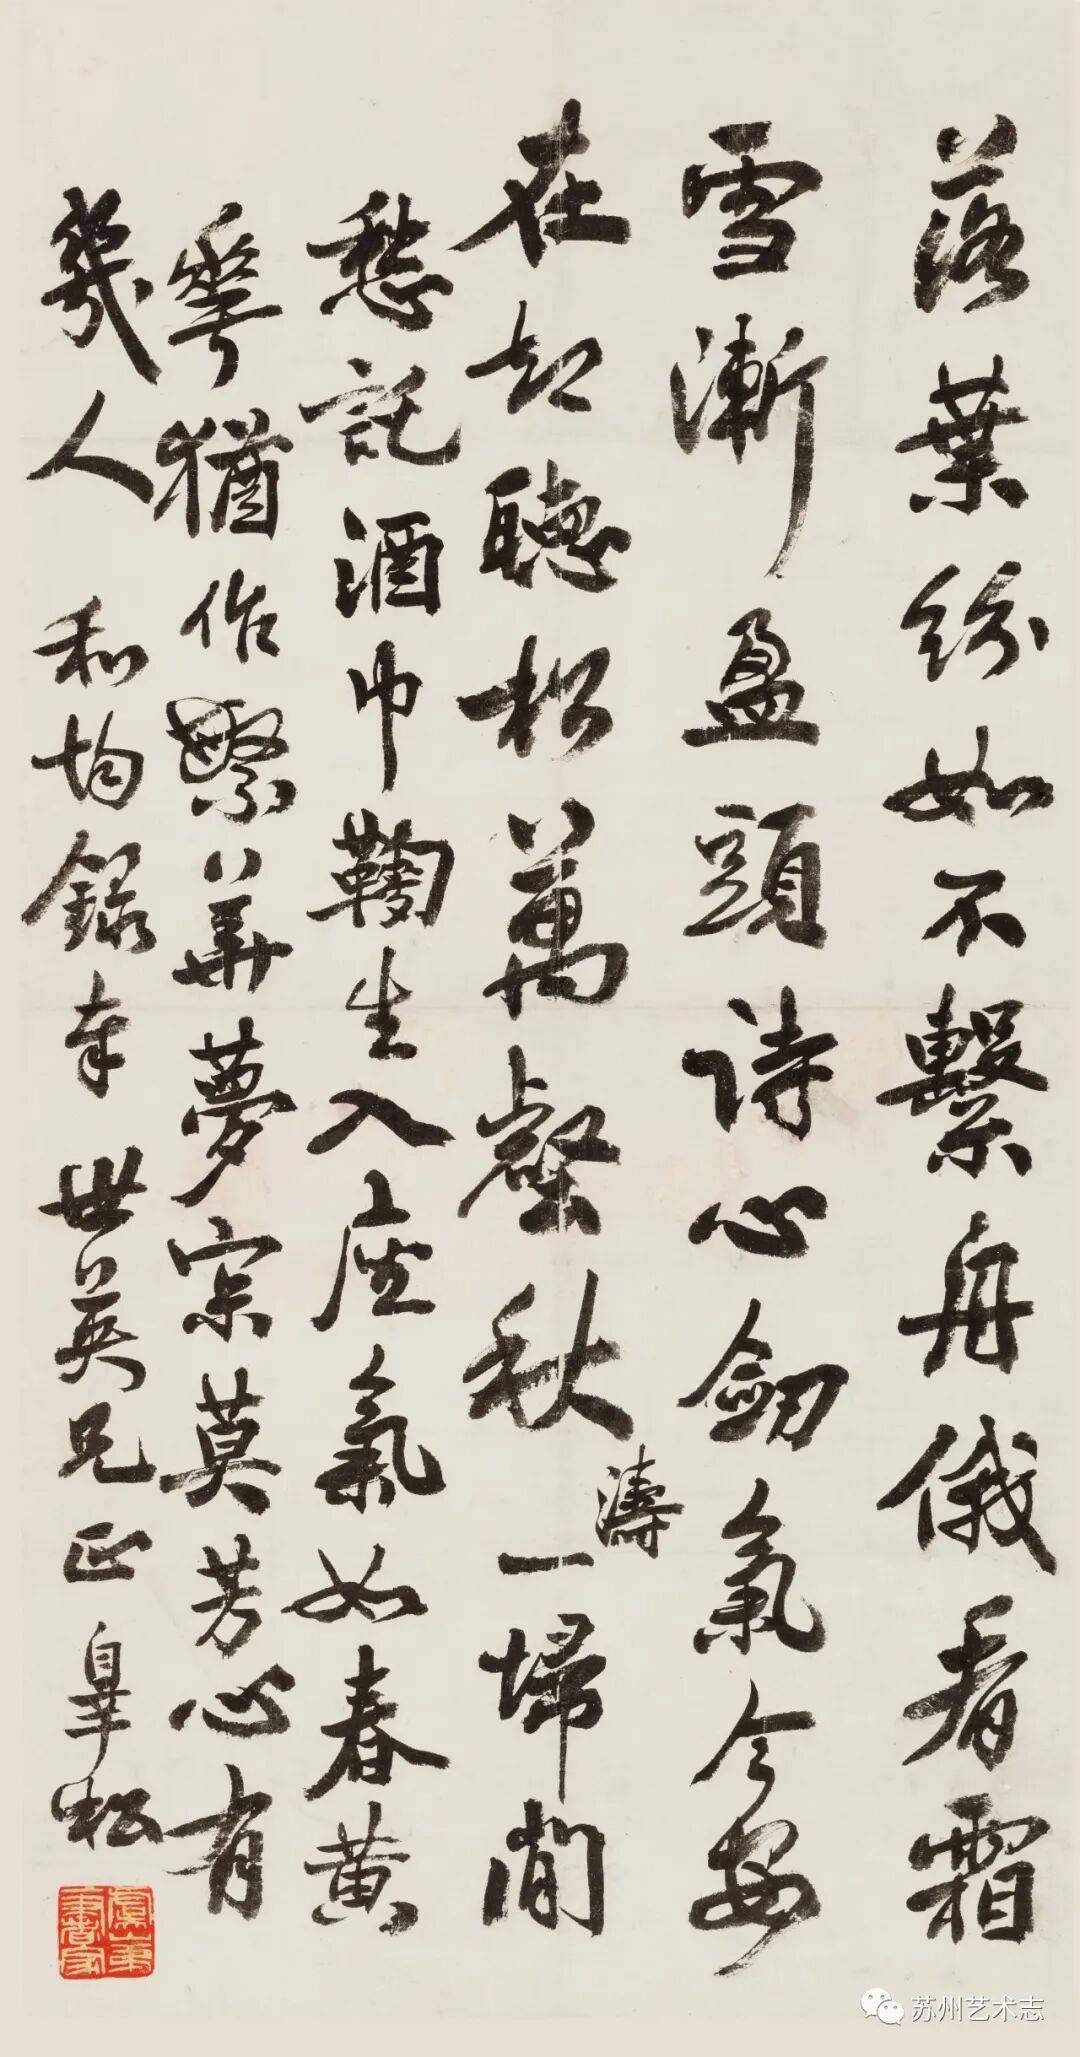 落葉紛如不繫舟俄看霜
雪漸盈頭詩心劍氣今安
在却聽松萬壑秋
濤
一埽閒
愁託酒巾鞠生入座氣如春黃
華猶作繁華夢宗莫芳心有
幾人 和均錄奉 世英兄正 皐松
苏州艺术志